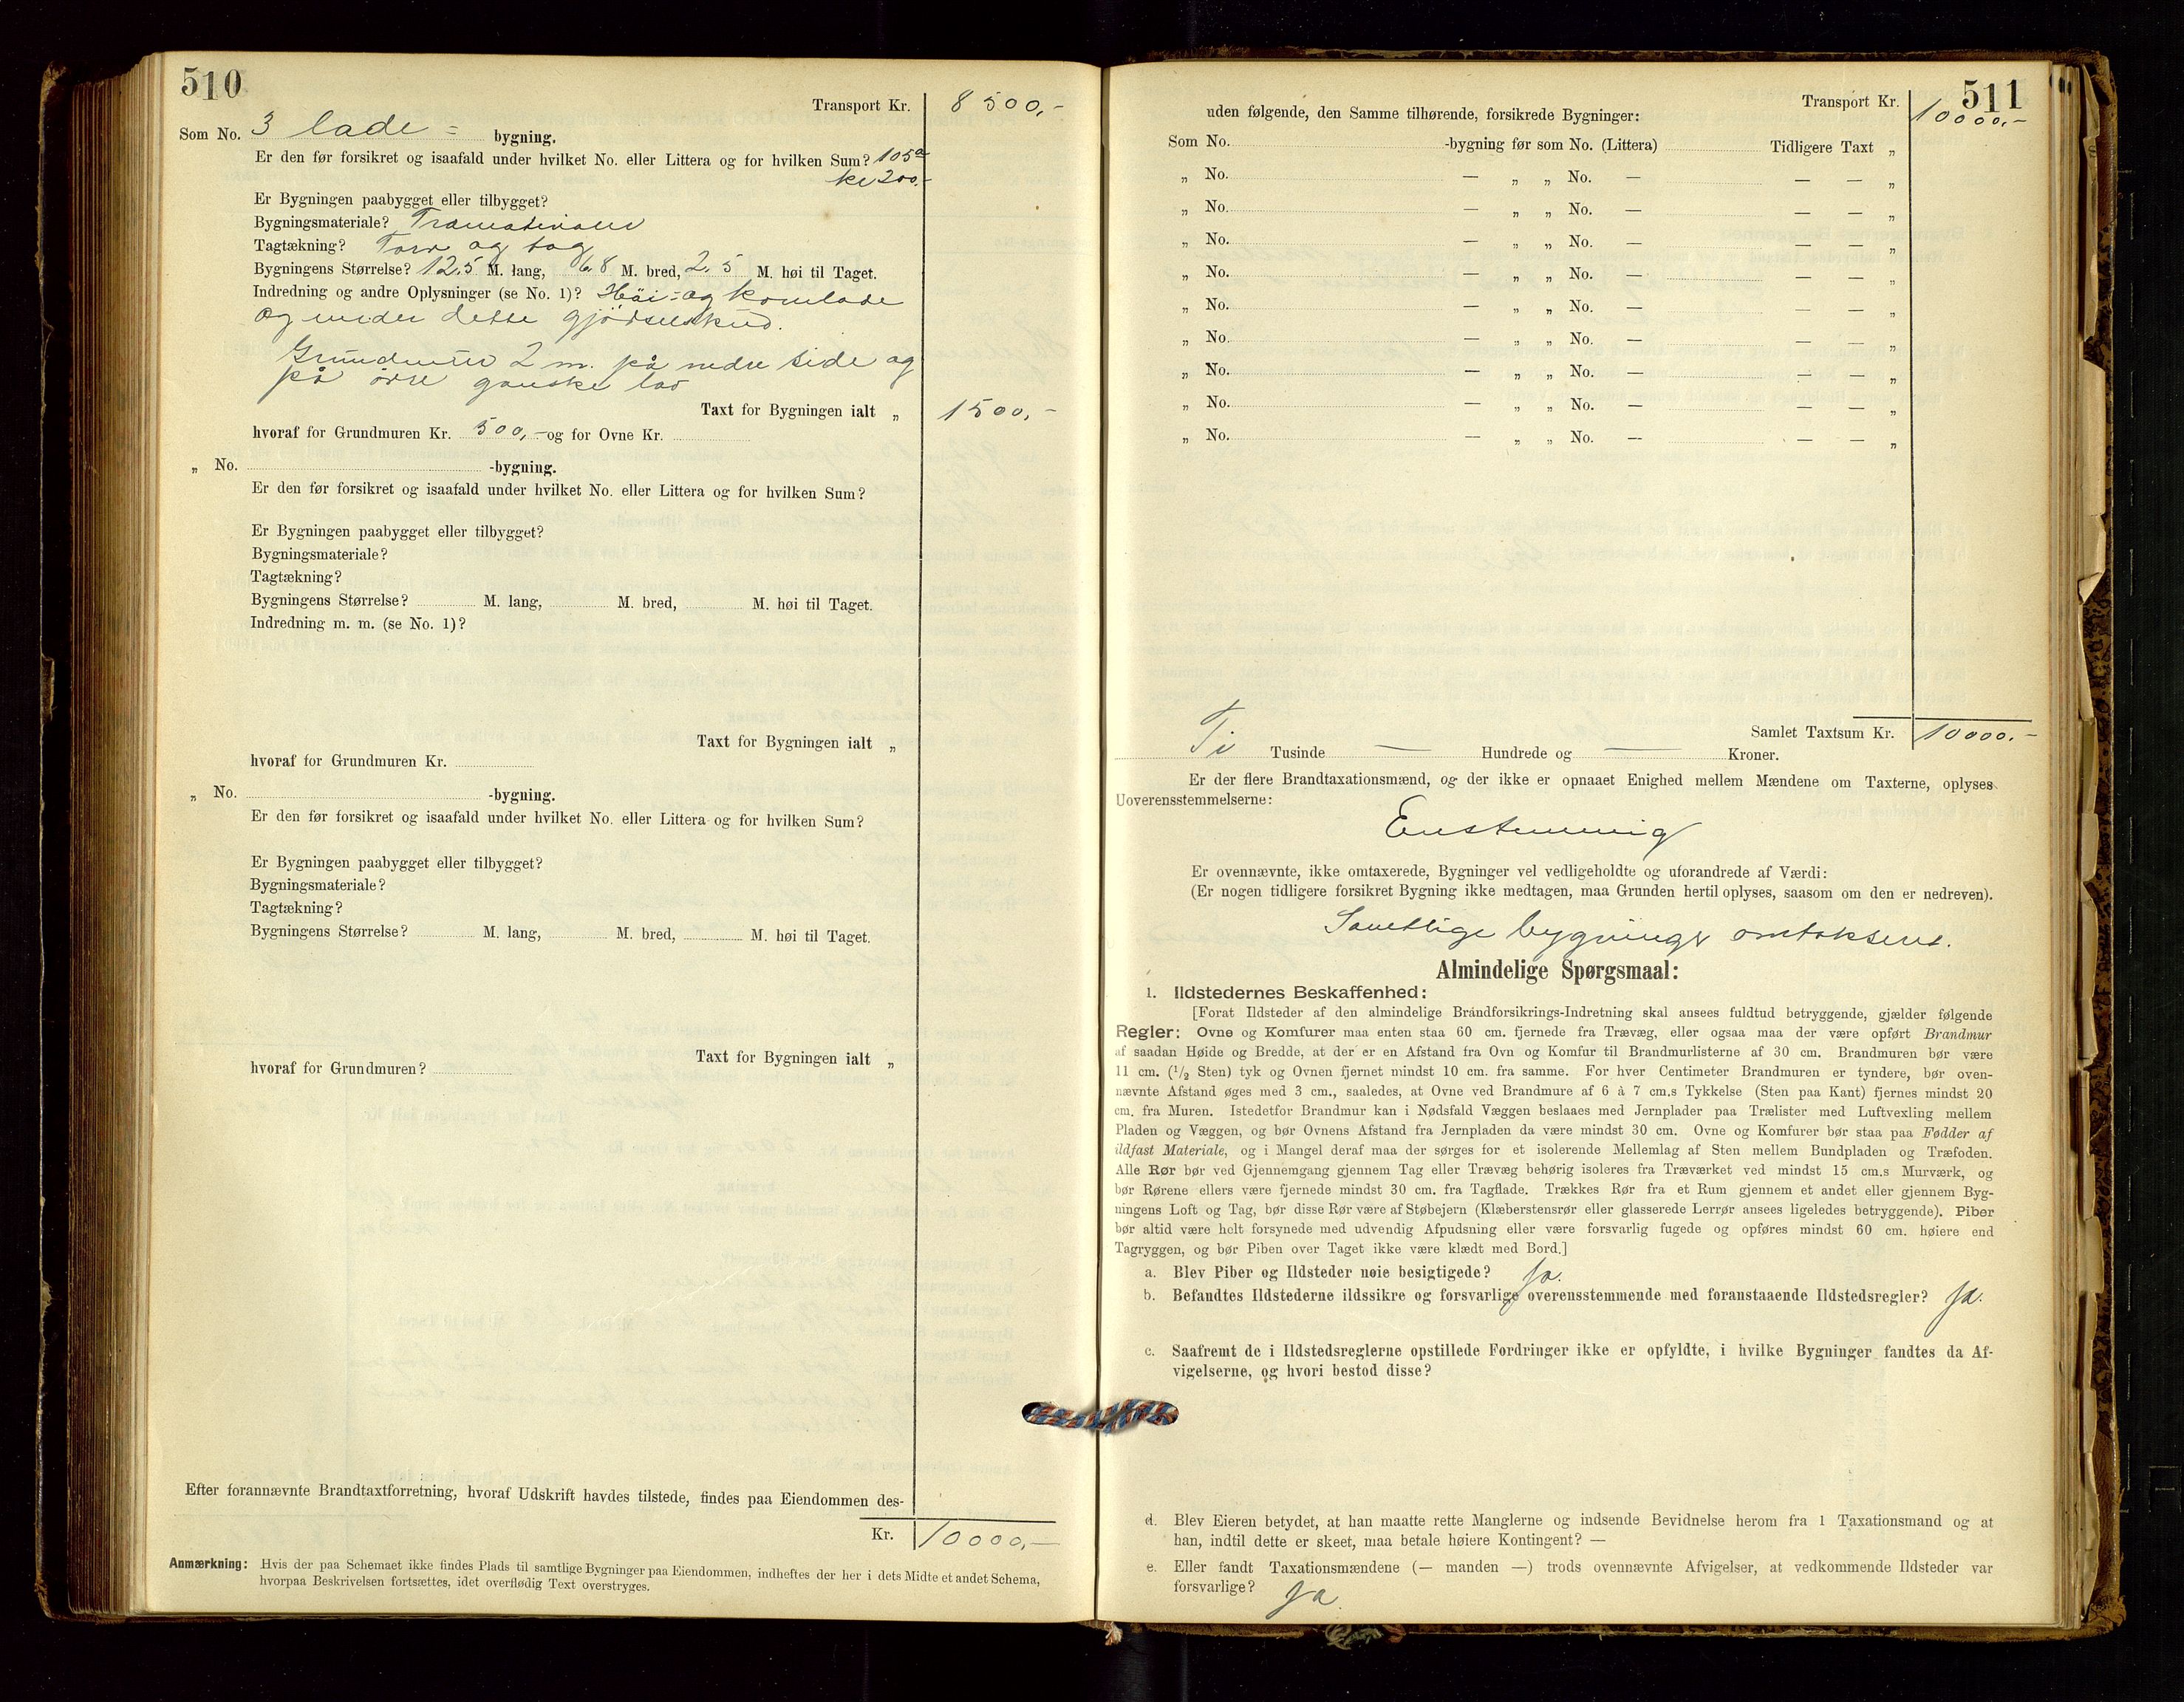 510
Transport Kr. 8500,-
Som No. 3 lade= bygning.
Er den før forsikret og isaafald under hvilket No. eller Littera og for hvilken Sum? 105a
kr 200.-
Er Bygningen paabygget eller tilbygget?
Bygningsmateriale? Træmaterialer
Tagtækning? Torv og tag
Bygningens Størrelse? 12,5 M. lang, 6,8 M. bred, 2,5 M. høi til Taget.
Indredning og andre Oplysninger (se No. 1)? Høi= og kornlade
og under dette gjødselskud.
Grundmur 2 m. på nedre side og
på övre ganske lav
Taxt for Bygningen ialt „ 1500,-
hvoraf for Grundmuren Kr. 500,- og for Ovne Kr.
„ No. -bygning.
Er den før forsikret og isaafald under hvilket No. eller Littera og for hvilken Sum?
Er Bygningen paabygget eller tilbygget?
Bygningsmateriale?
Tagtækning?
Bygningens Størrelse? M. lang, M. bred, M. høi til Taget.
Indredning m. m. (se No. 1)?
Taxt for Bygningen ialt „
hvoraf for Grundmuren Kr.
„ No. -bygning.
Er den før forsikret og isaafald under hvilket No. eller Littera og for hvilken Sum?
Er Bygningen paabygget eller tilbygget?
Bygningsmateriale?
Tagtækning?
Bygningens Størrelse? M. lang, M. bred, M. høi til Taget.
Taxt for Bygningen ialt „
hvoraf for Grundmuren?
Efter forannævnte Brandtaxtforretning, hvoraf Udskrift havdes tilstede, findes paa Eiendommen des-
Kr. 10000,-
Anmærkning: Hvis der paa Schemaet ikke findes Plads til samtlige Bygninger paa Eiendommen, indheftes der her i dets Midte et andet Schema,
hvorpaa Beskrivelsen fortsættes, idet overflødig Text overstryges.
511
Transport Kr. 10000,-
uden følgende, den Samme tilhørende, forsikrede Bygninger:
Som No. -bygning før som No. (Littera) Tidligere Taxt „
„ No. — „ „ No. — — — „
„ No. — „ „ No. — — — „
„ No. — „ „ No. — — — „
„ No. — „ „ No. — — — „
„ No. — „ „ No. — — — „
„ No. — „ „ No. — — — „
„ No. — „ „ No. — — — „
„ No. — „ „ No. — — — „
„ No. — „ „ No. — — — „
Samlet Taxtsum Kr. 10000.-
Ti Tusinde — Hundrede og — Kroner.
Er der flere Brandtaxationsmænd, og der ikke er opnaaet Enighed mellem Mændene om Taxterne, oplyses
Uoverensstemmelserne:
Enstemmig
Er ovennævnte, ikke omtaxerede, Bygninger vel vedligeholdte og uforandrede af Værdi:
(Er nogen tidligere forsikret Bygning ikke medtagen, maa Grunden hertil oplyses, saasom om den er nedreven).
Samtlige bygninger omtakseret.
Almindelige Spørgsmaal:
1. Ildstedernes Beskaffenhed:
[Forat Ildsteder af den almindelige Brandforsikrings-Indretning skal ansees fuldtud betryggende, gjælder følgende
Regler: Ovne og Komfurer maa enten staa 60 cm. fjernede fra Trævæg, eller ogsaa maa der være opført Brandmur
af saadan Høide og Bredde, at der er en Afstand fra Ovn og Komfur til Brandmurlisterne af 30 cm. Brandmuren bør være
11 cm. (1/2 Sten) tyk og Ovnen fjernet mindst 10 cm. fra samme. For hver Centimeter Brandmuren er tyndere, bør oven-
nævnte Afstand øges med 3 cm., saaledes, at Ovne ved Brandmure af 6 à 7 cm.s Tykkelse (Sten paa Kant) fjernes mindst 20
cm. fra Muren. Istedetfor Brandmur kan i Nødsfald Væggen beslaaes med Jernplader paa Trælister med Luftvexling mellem
Pladen og Væggen, og bør Ovnens Afstand fra Jernpladen da være mindst 30 cm. Ovne og Komfurer bør staa paa Fødder af
ildfast Materiale, og i Mangel deraf maa der sørges for et isolerende Mellemlag af Sten mellem Bundpladen og Træfoden.
Alle Rør bør ved Gjennemgang gjennem Tag eller Trævæg behørig isoleres fra Træværket ved mindst 15 cm.s Murværk, og
bør Rørene ellers være fjernede mindst 30 cm. fra Tagflade. Trækkes Rør fra et Rum gjennem et andet eller gjennem Byg-
ningens Loft og Tag, bør disse Rør være af Støbejern (Klæberstensrør eller glasserede Lerrør ansees ligeledes betryggende). Piber
bør altid være helt forsynede med udvendig Afpudsning eller være forsvarlig fugede og opføres mindst 60 cm. høiere end
Tagryggen, og bør Piben over Taget ikke være klædt med Bord.]
a. Blev Piber og Ildsteder nøie besigtigede? ja.
b. Befandtes Ildstederne ildssikre og forsvarlige overensstemmende med foranstaaende Ildstedsregler? ja.
c. Saafremt de i Ildstedsreglerne opstillede Fordringer ikke er opfyldte, i hvilke Bygninger fandtes da Af-
vigelserne, og hvori bestod disse?
d. Blev Eieren betydet, at han maatte rette Manglerne og indsende Bevidnelse herom fra 1 Taxationsmand og at
han, indtil dette er skeet, maa betale høiere Kontingent? —
e. Eller fandt Taxationsmændene (— manden —) trods ovennævnte Afvigelser, at vedkommende Ildsteder var
forsvarlige? ja.